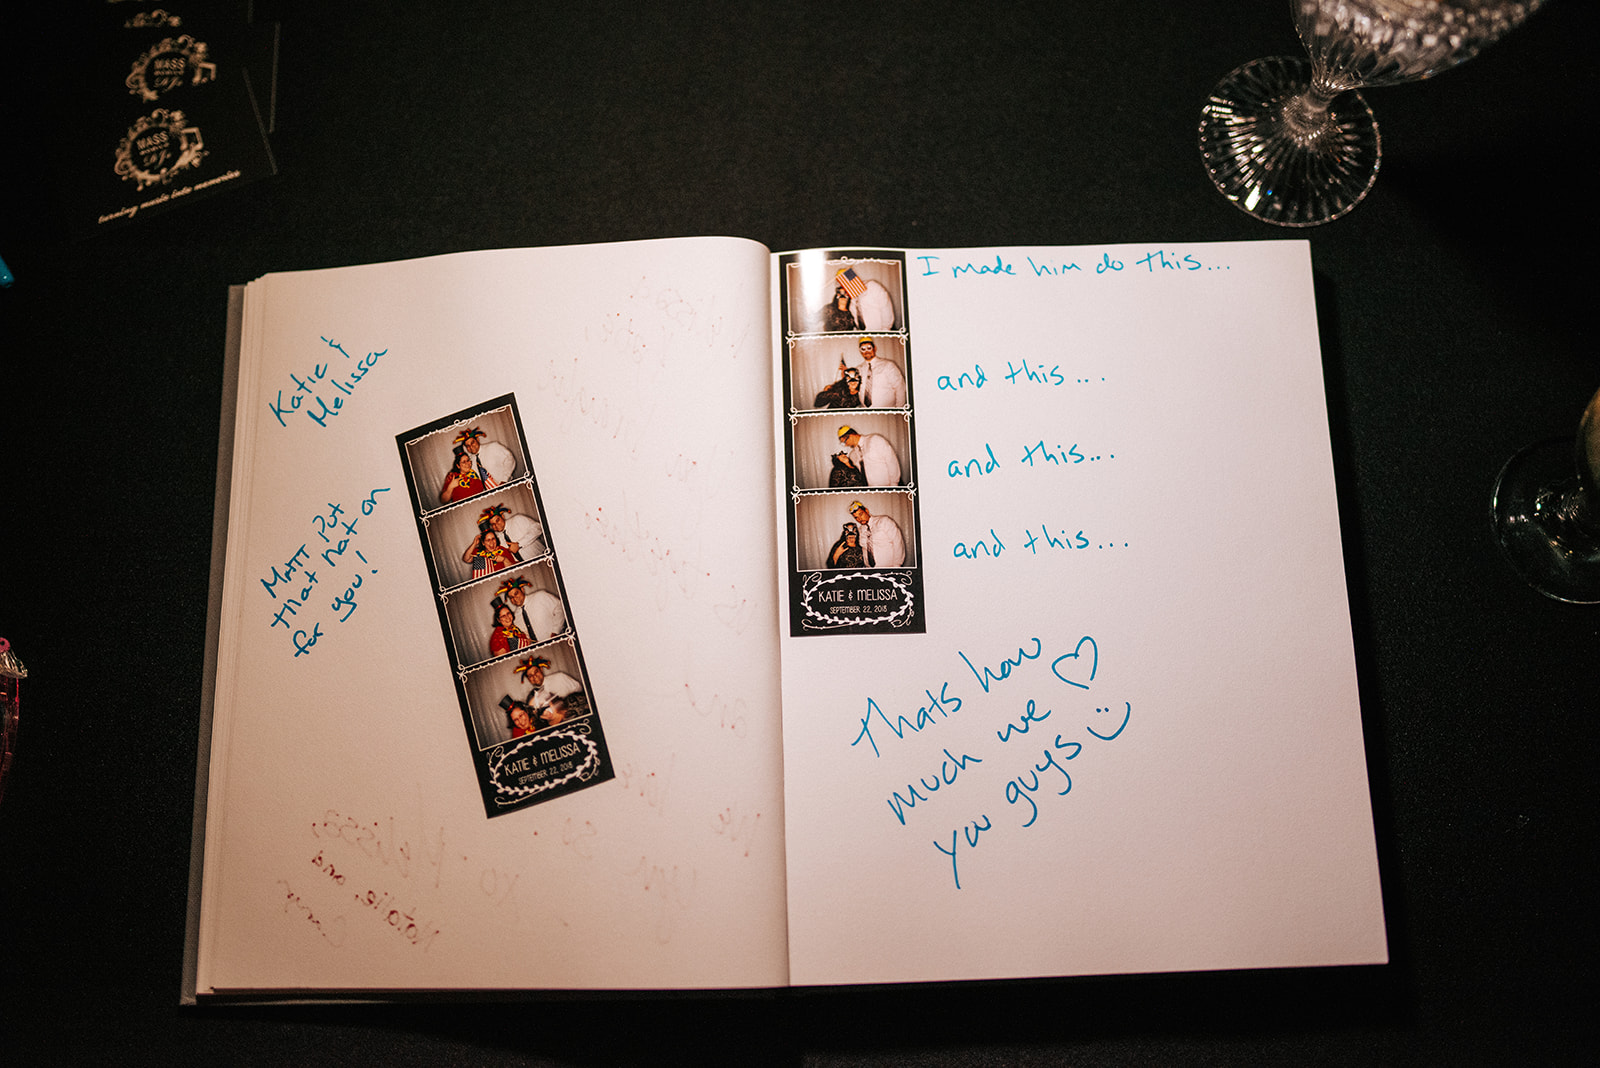 MASS
MASS
turning music into memories
Katie &
Melissa
Matt put
that hat on
for you!
KATIE & MELISSA
SEPTEMBER 22, 2018
I made him do this...
and this...
and this...
and this...
KATIE & MELISSA
SEPTEMBER 22, 2018
Thats how
much we ♡
you guys
Melissa,
Natalie, and